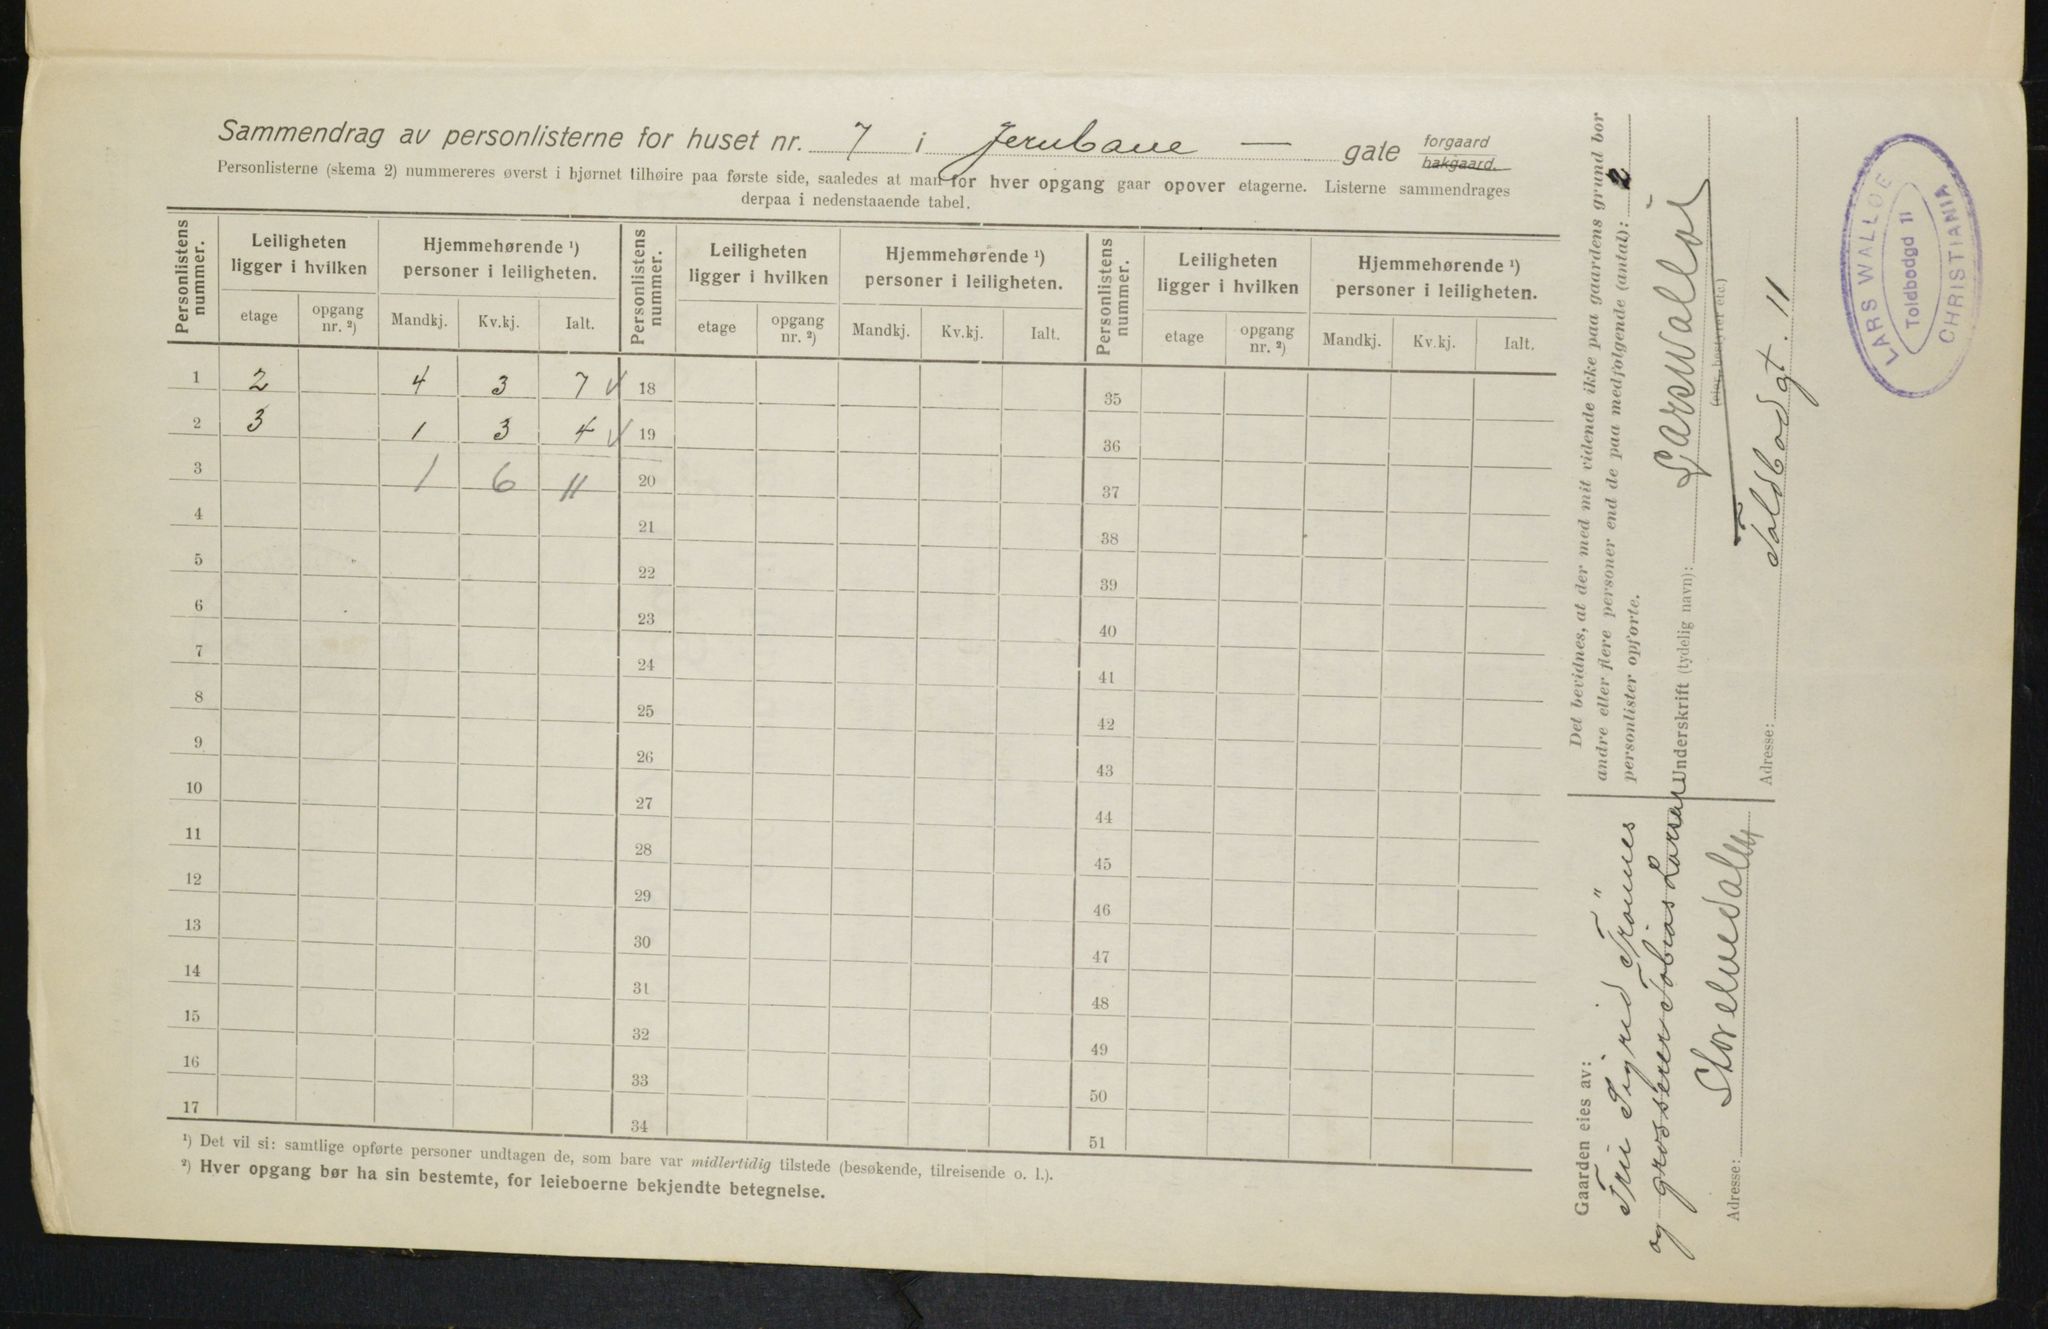 Sammendrag av personlisterne for huset nr. 7 i Jernbane — gate forgaard bakgaard.
Personlisterne (skema 2) nummereres øverst i hjørnet tilhøire paa første side, saaledes at man for hver opgang gaar opover etagerne. Listerne sammendrages
derpaa i nedenstaaende tabel.
Personlistens nummer. Leiligheten ligger i hvilken Hjemmehørende ¹) personer i leiligheten. Personlistens nummer. Leiligheten ligger i hvilken Hjemmehørende ¹) personer i leiligheten. Personlistens nummer. Leiligheten ligger i hvilken Hjemmehørende ¹) personer i leiligheten.
etage opgang nr. ²) Mandkj. Kv.kj. Ialt. etage opgang nr. ²) Mandkj. Kv.kj. Ialt. etage opgang nr. ²) Mandkj. Kv.kj. Ialt.
1 2 4 3 7 √ 18 35
2 3 1 3 4 √ 19 36
3 1 6 11 20 37
4 21 38
5 22 39
6 23 40
7 24 41
8 25 42
9 26 43
10 27 44
11 28 45
12 29 46
13 30 47
14 31 48
15 32 49
16 33 50
17 34 51
¹) Det vil si: samtlige opførte personer undtagen de, som bare var midlertidig tilstede (besøkende, tilreisende o. l.).
²) Hver opgang bør ha sin bestemte, for leieboerne bekjendte betegnelse.
Det bevidnes, at der med mit vidende ikke paa gaardens grund bor
andre eller flere personer end de paa medfølgende (antal): 2
personlister opførte.
Underskrift (tydelig navn): Lars Walløe
(eier, bestyrer etc.)
Adresse: Toldbodgt. 11
Gaarden eies av:
Fru Sigrid Tromes
og grosserer Tobias Larsen
Adresse: Storelvedalen
LARS WALLOE
Toldbodgd 11
CHRISTIANIA